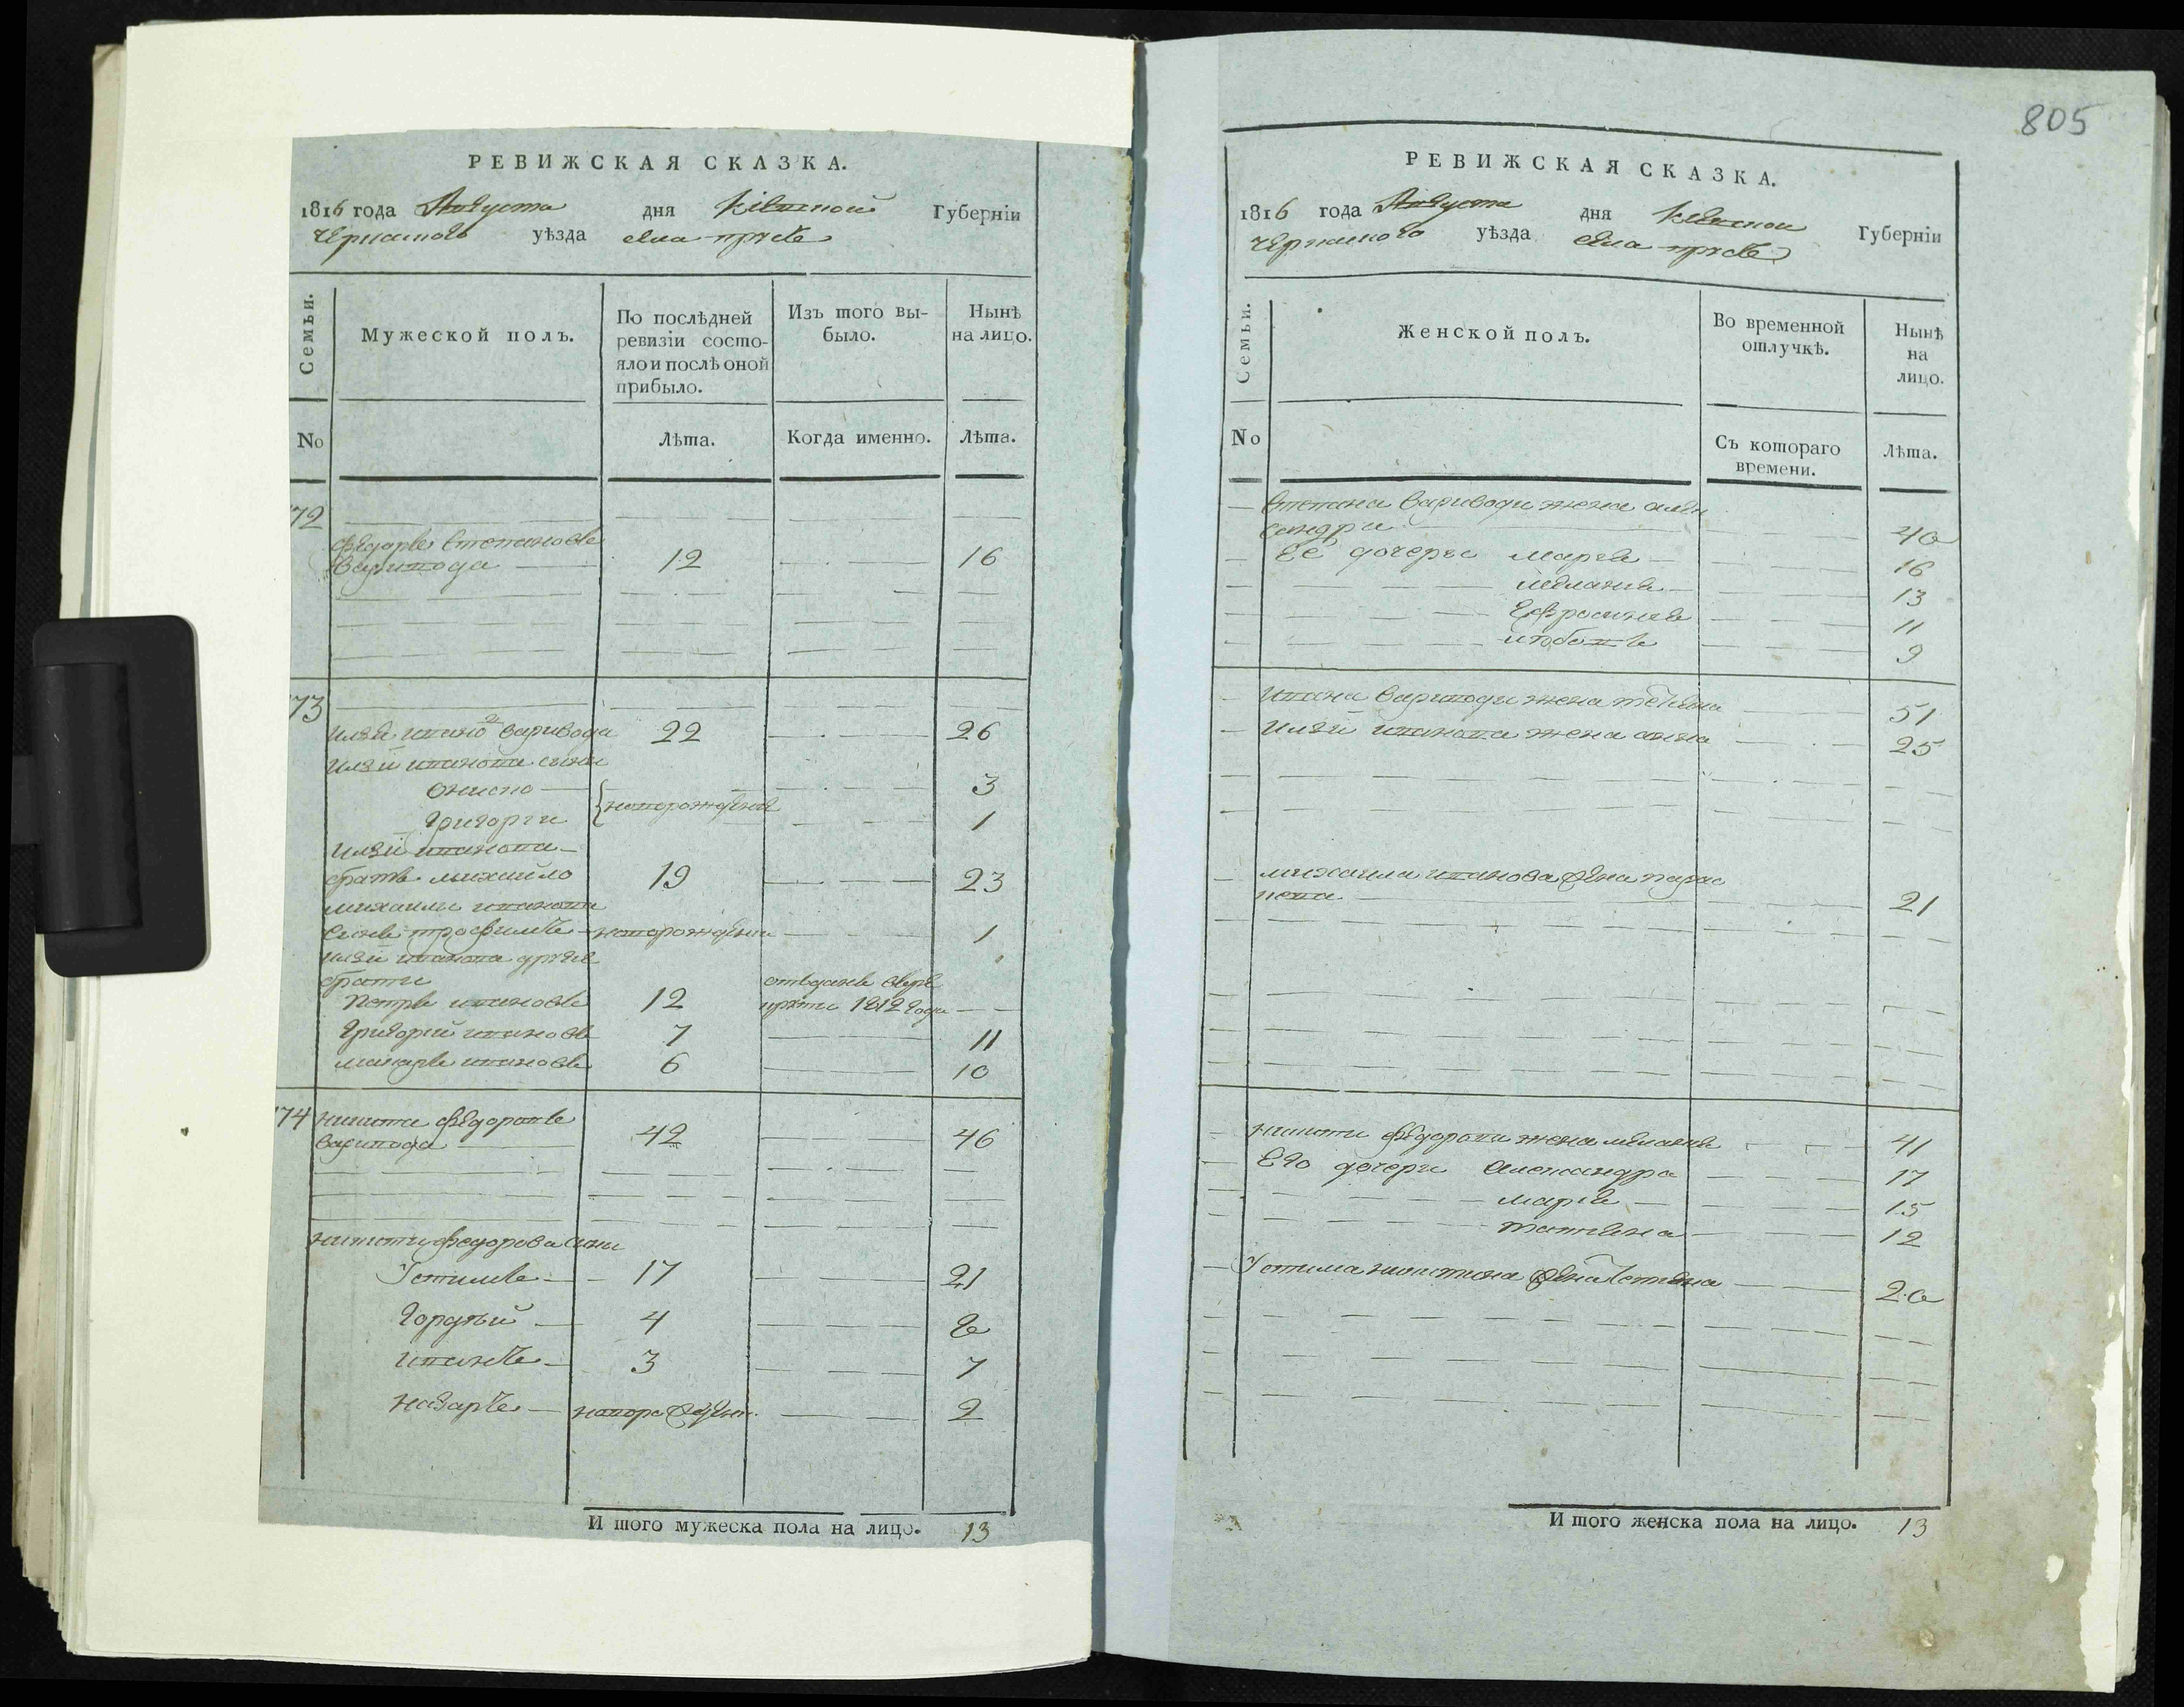 РЕВИЖСКАЯ СКАЗКА.
1816 года Августа дня Кіевской Губерніи
Черкаского уѣзда села
Семьи. Мужеской полъ. По послѣдней ревизіи состояло и послѣ оной прибыло. Изъ того выбыло. Нынѣ на лицо.
No Лѣта. Когда именно. Лѣта.
72
Федоръ Степановъ
Варивода 12 16
73
Илья Ивано Варивода 22 26
Ильи Иванова сыны
Ониско 3
новорожденые
Григорги 1
Ильи Иванова
братъ михайло 19 23
михаила Иванова
сынъ трофимъ новорожденъ 1
Ильи Иванова другие
брати
Петръ Ивановъ 12 отъданъ 1812 Года
Григорий Ивановъ 7 11
макаръ Ивановъ 6 10
74 никита федоровъ
варивода 42 46
никити федорова сыны
Устимъ 17 21
Гордѣй 4 8
Иванъ 3 7
назаръ новорожден. 2
И того мужеска пола на лицо. 13
805
РЕВИЖСКАЯ СКАЗКА.
1816 года Августа дня Кіевской Губерніи
Черкаского уѣзда села
Семьи. Женской полъ. Во временной отлучкѣ. Нынѣ на лицо.
No Съ котораго времени. Лѣта.
Степана Вариводи жена алек
сандра 40
Ее дочеры марья 16
меланья 13
Ефросинья 11
любовь 9
Ивана Вариводи жена 51
Ильи Иванова жена анна 25
михаила Иванова жена парас
кева 21
никити федорова жена меланья 41
Его дочери Александра 17
марья 15
татьяна 12
Устима никитина жена 20
И того женска пола на лицо. 13